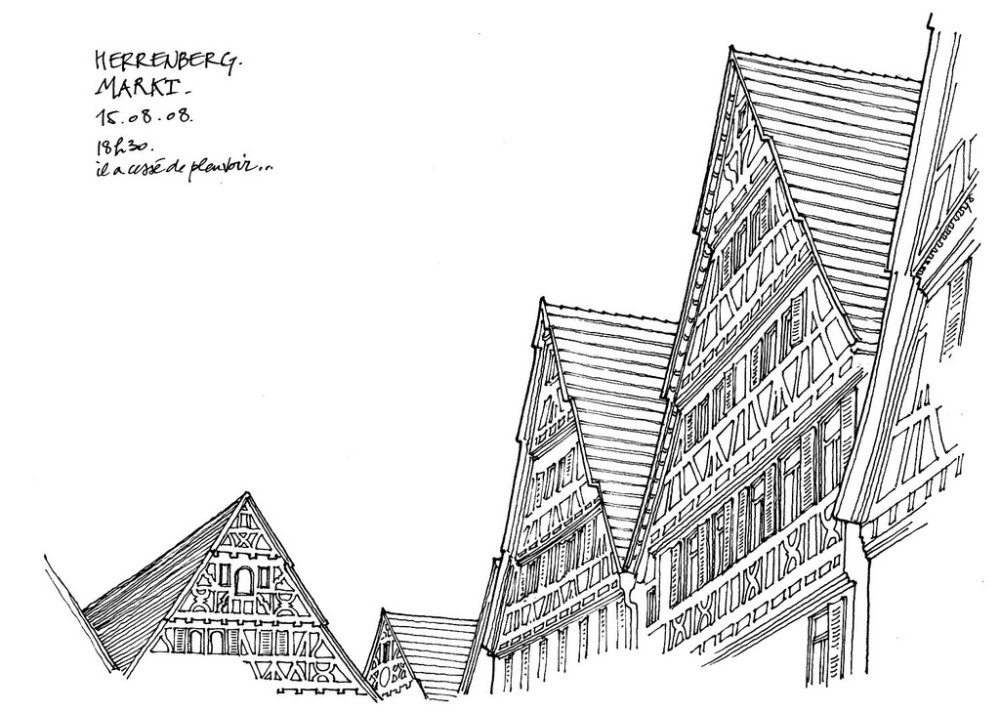 HERRENBERG.
MARKT_
15.08.08.
18h30.
il a cessé de pleuvoir...